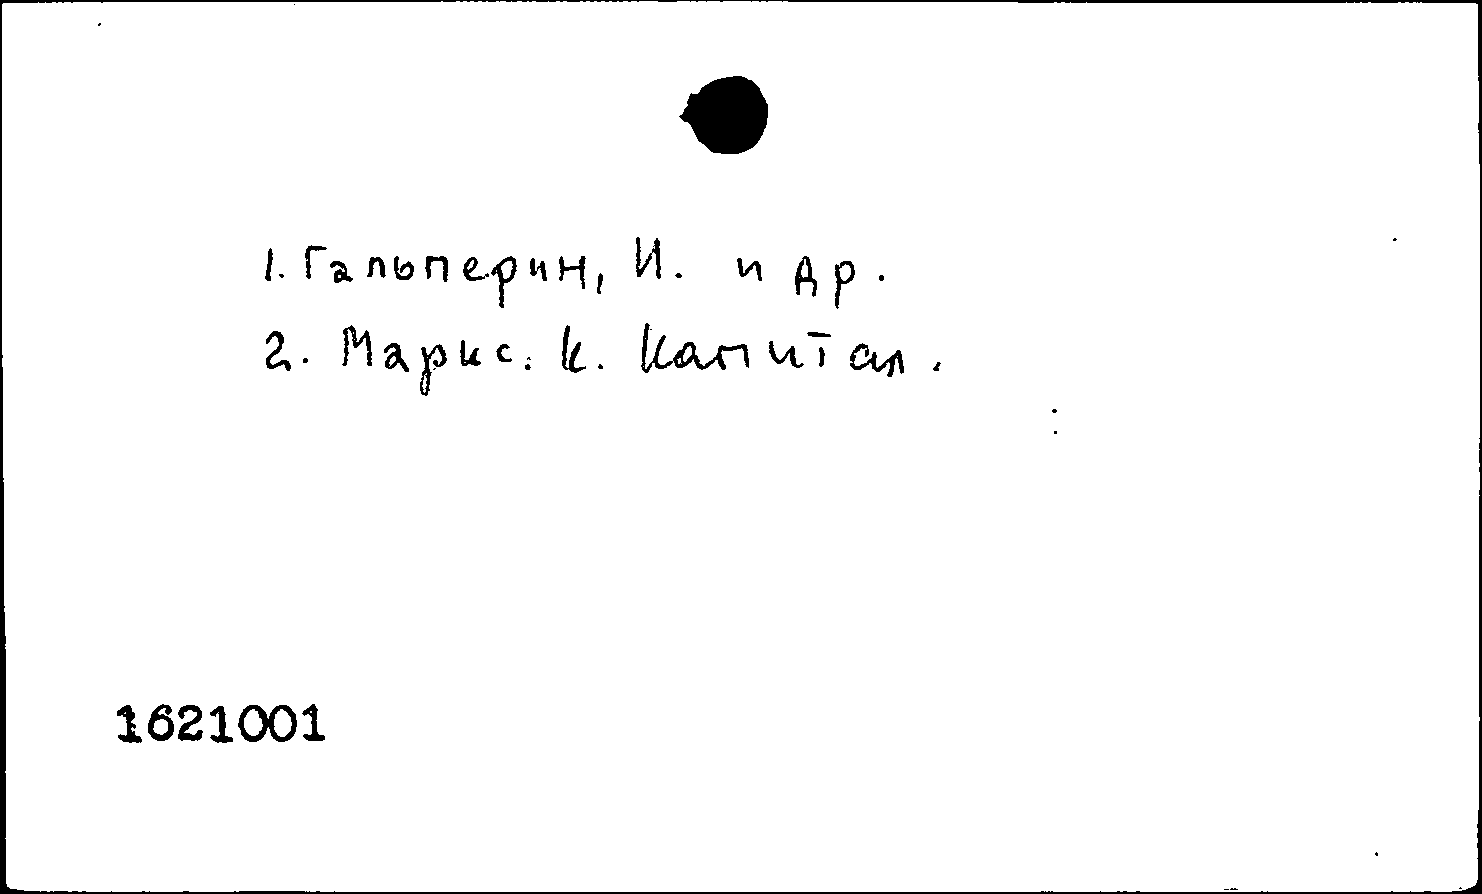 1. Гальперин, И. и др.
2. Маркс. К. Капитал.
1621001